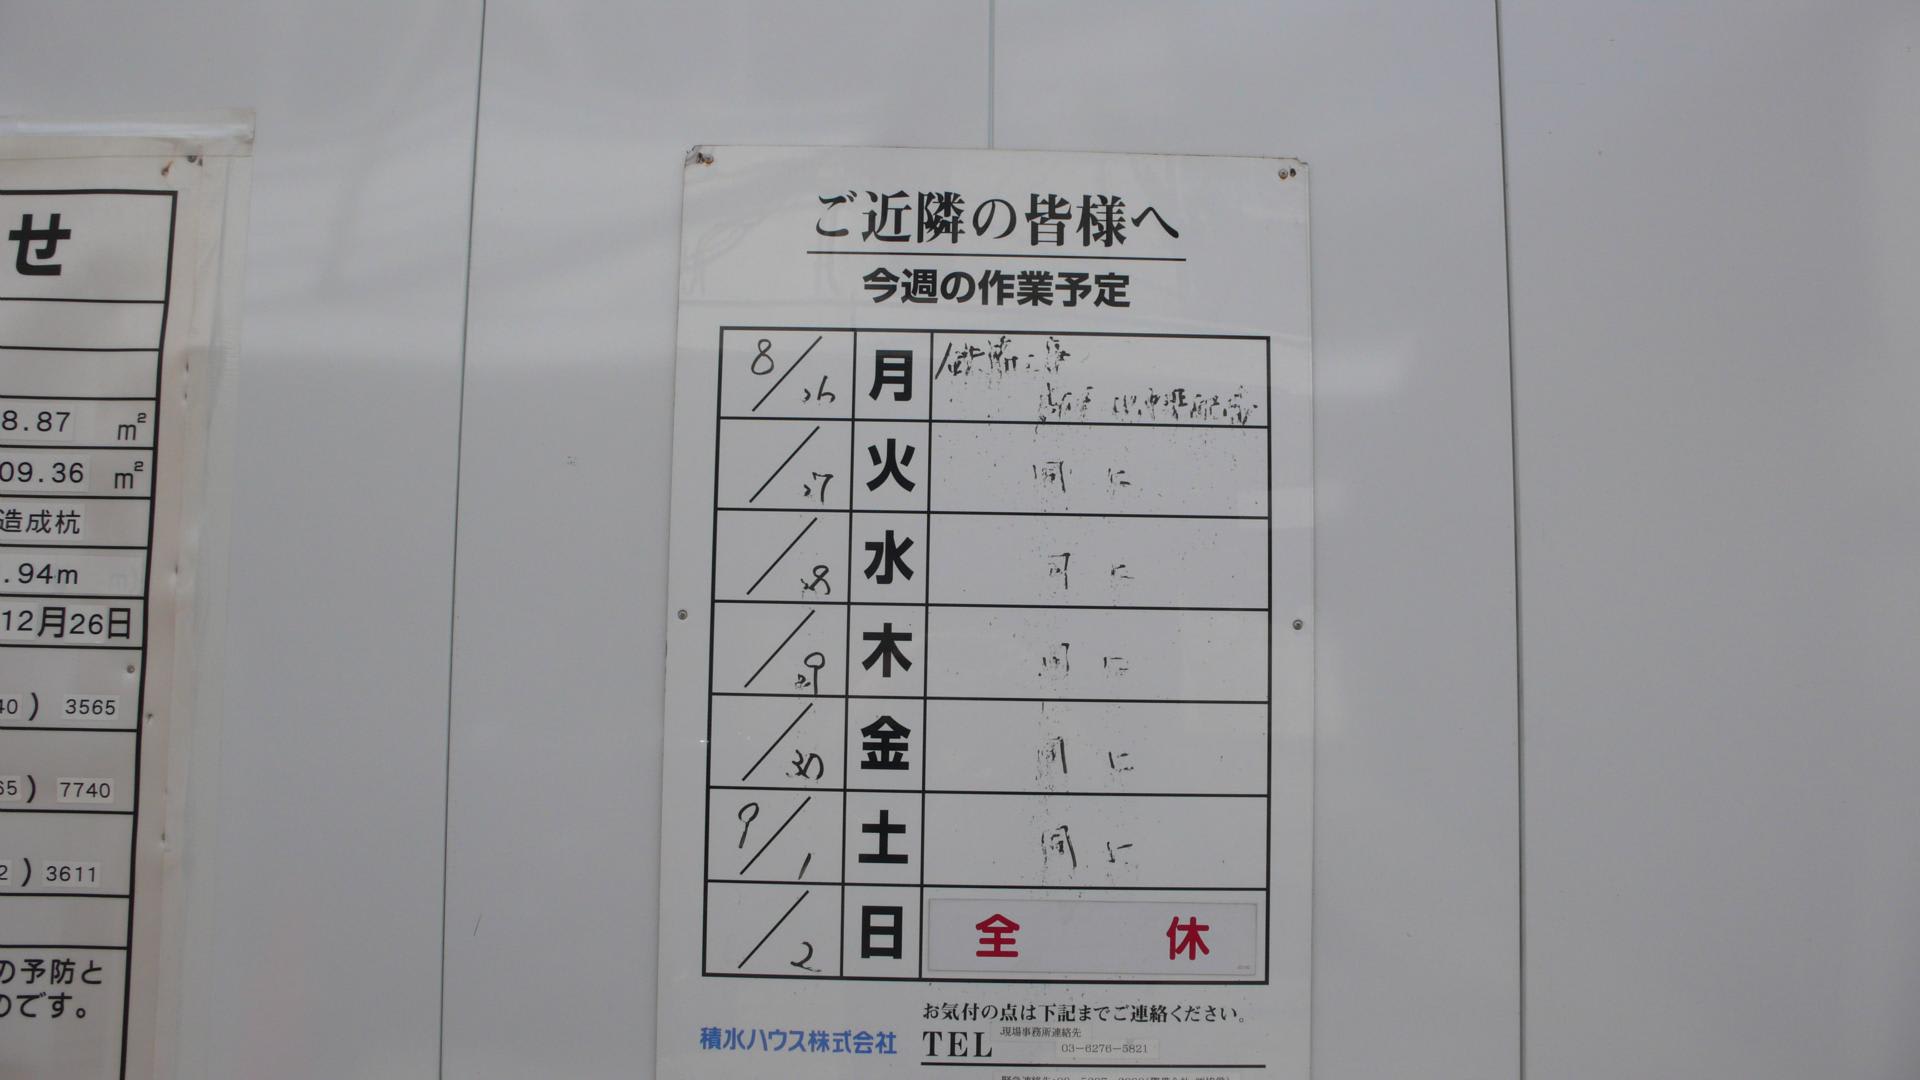 せ
8.87 m²
09.36 m²
造成杭
.94m
12月26日
40) 3565
65) 7740
2) 3611
の予防と
のです。
ご近隣の皆様へ
今週の作業予定
8/26 月
/27 火 同に
/28 水 同に
/29 木 同に
/30 金 同に
9/1 土 同に
/2 日 全休
お気付の点は下記までご連絡ください。
積水ハウス株式会社
TEL 現場事務所連絡先
03-6276-5821